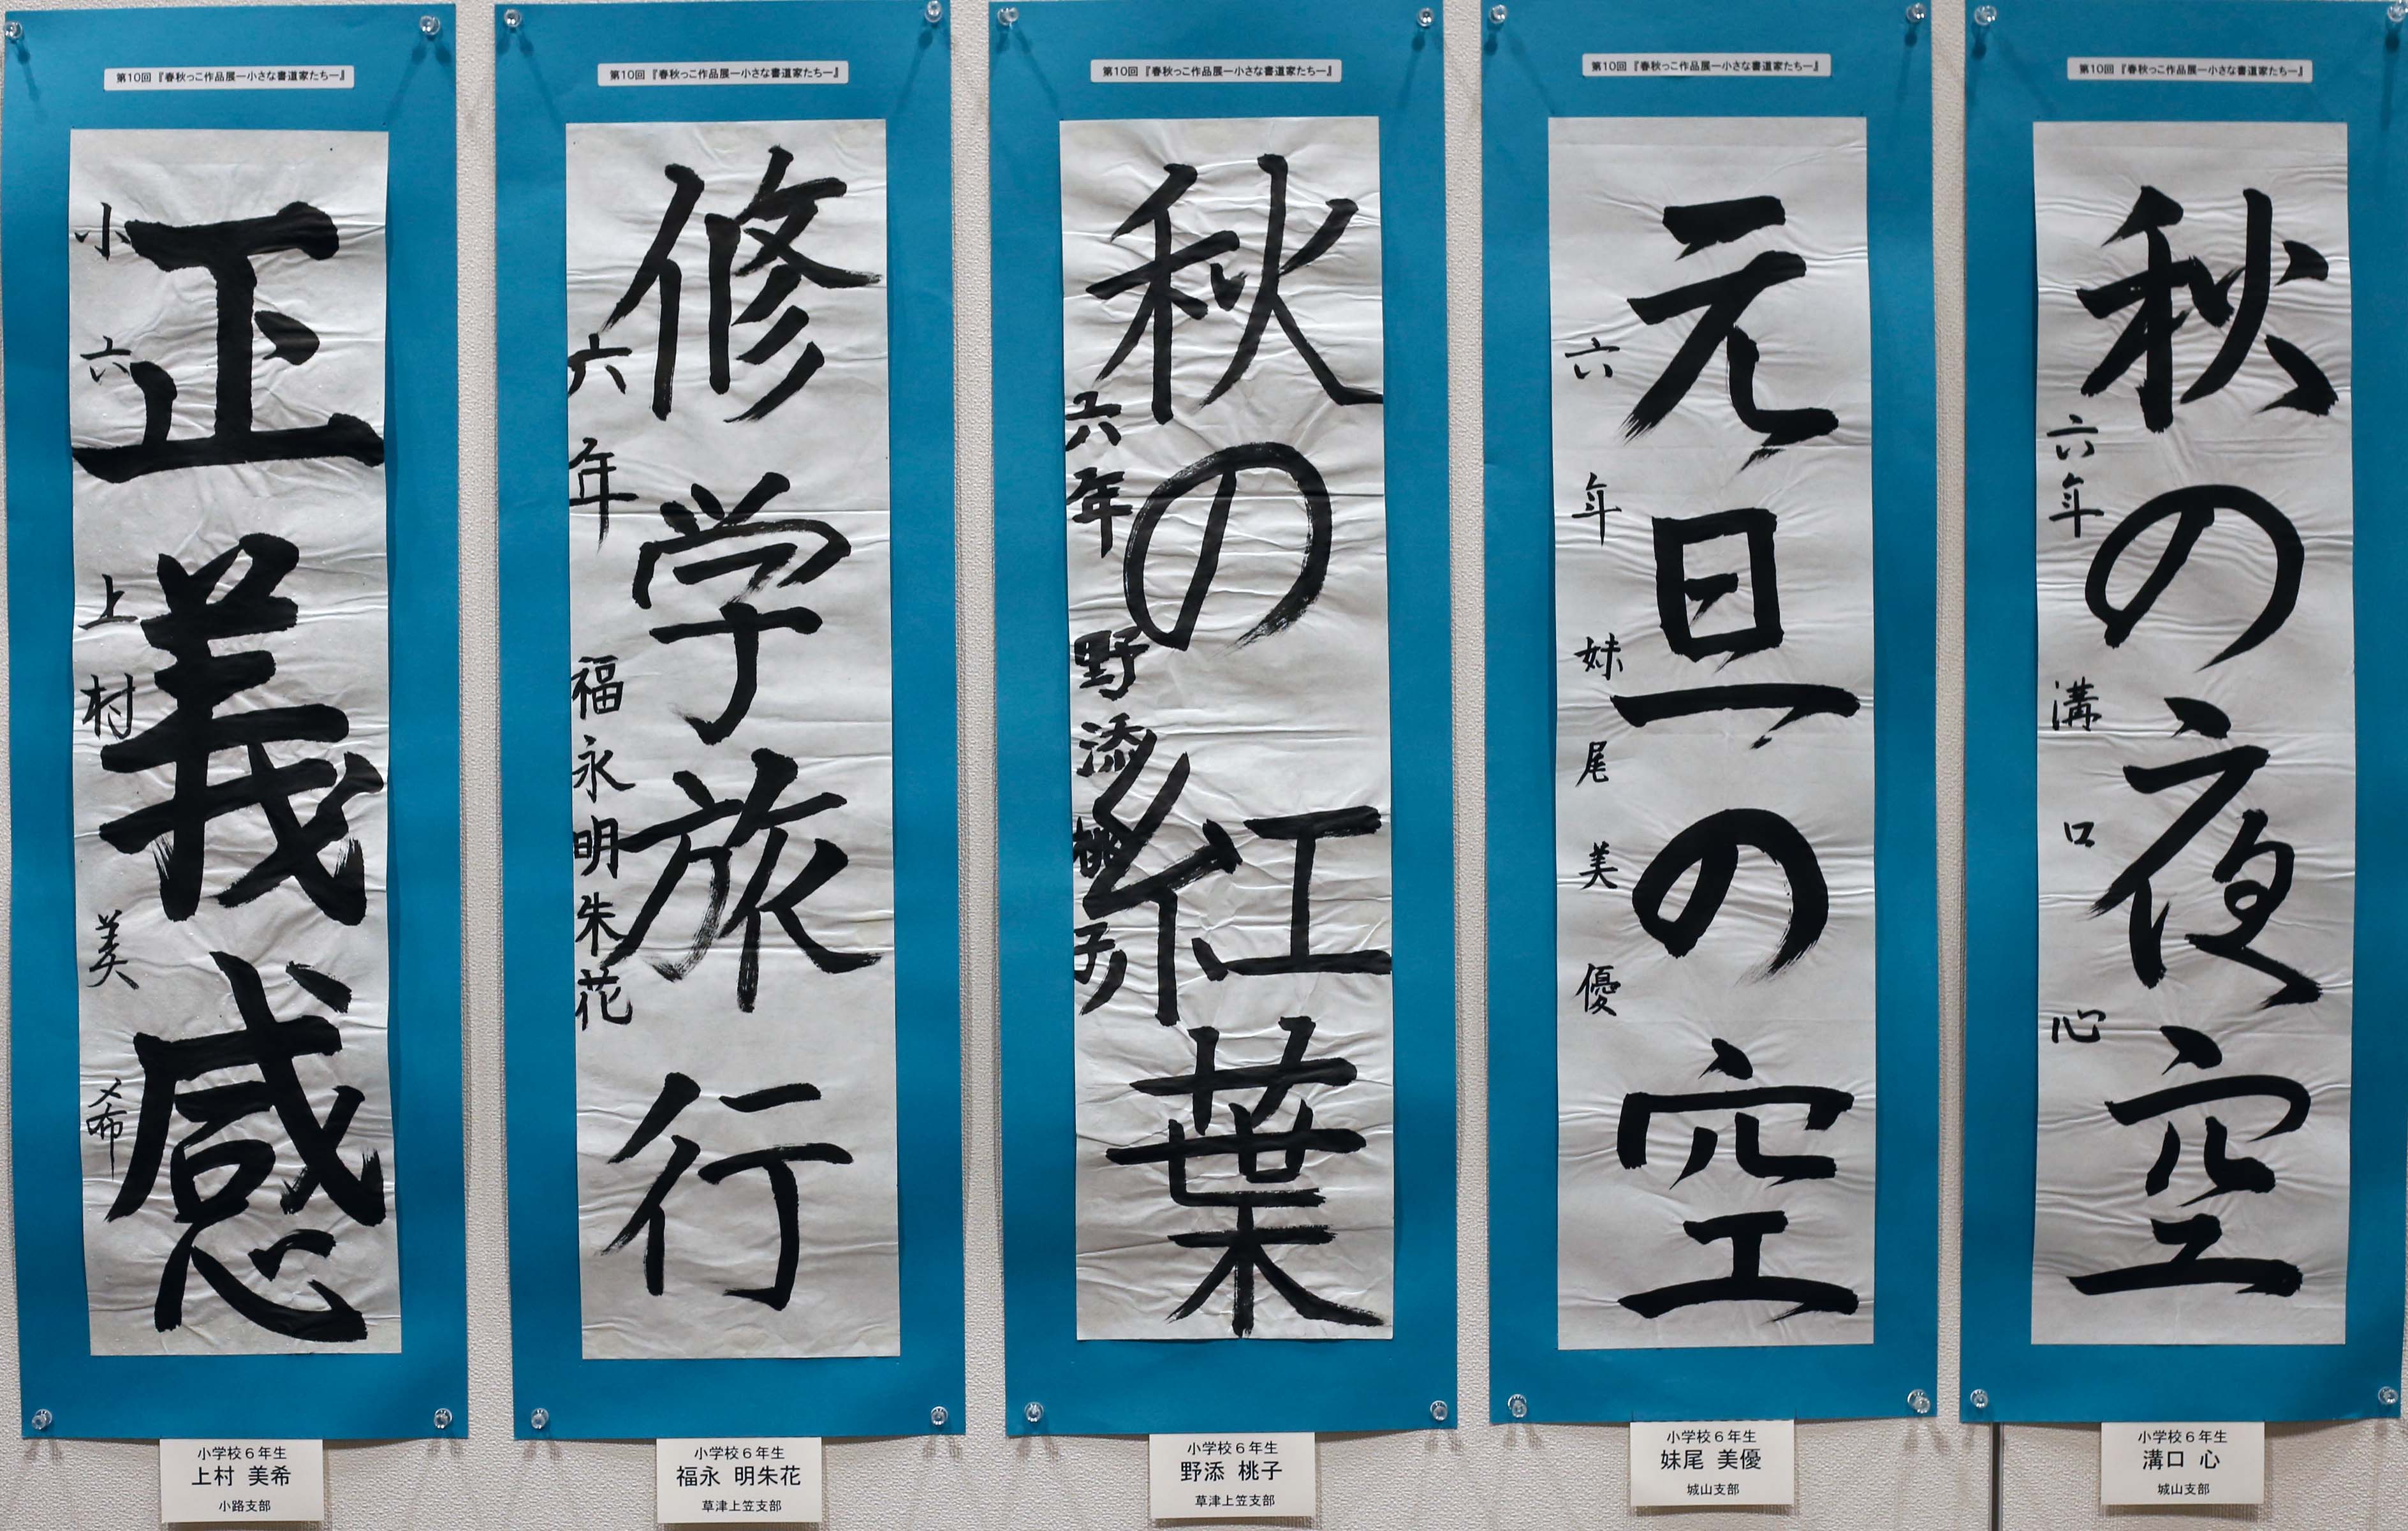 第10回『春秋っこ作品展ー小さな書道家たちー』
正義感
小六 上村美希
小学校6年生
上村 美希
小路支部
第10回『春秋っこ作品展ー小さな書道家たちー』
修学旅行
六年 福永明朱花
小学校6年生
福永 明朱花
草津上笠支部
第10回『春秋っこ作品展ー小さな書道家たちー』
秋の紅葉
六年 野添桃子
小学校6年生
野添 桃子
草津上笠支部
第10回『春秋っこ作品展ー小さな書道家たちー』
元旦の空
六年 妹尾美優
小学校6年生
妹尾 美優
城山支部
第10回『春秋っこ作品展ー小さな書道家たちー』
秋の夜空
六年 溝口心
小学校6年生
溝口 心
城山支部